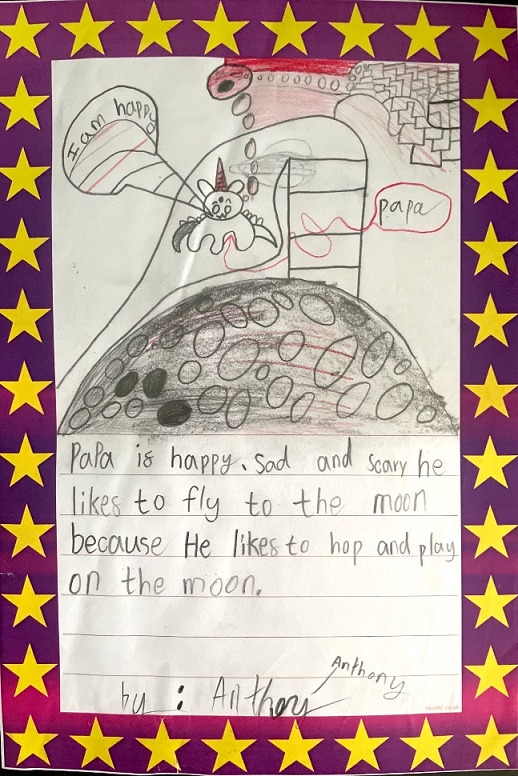 I am happy
papa
PaPa is happy. sad and scary he
likes to fly to the moon
because He likes to hop and play
on the moon.
Anthony
by : Anthony